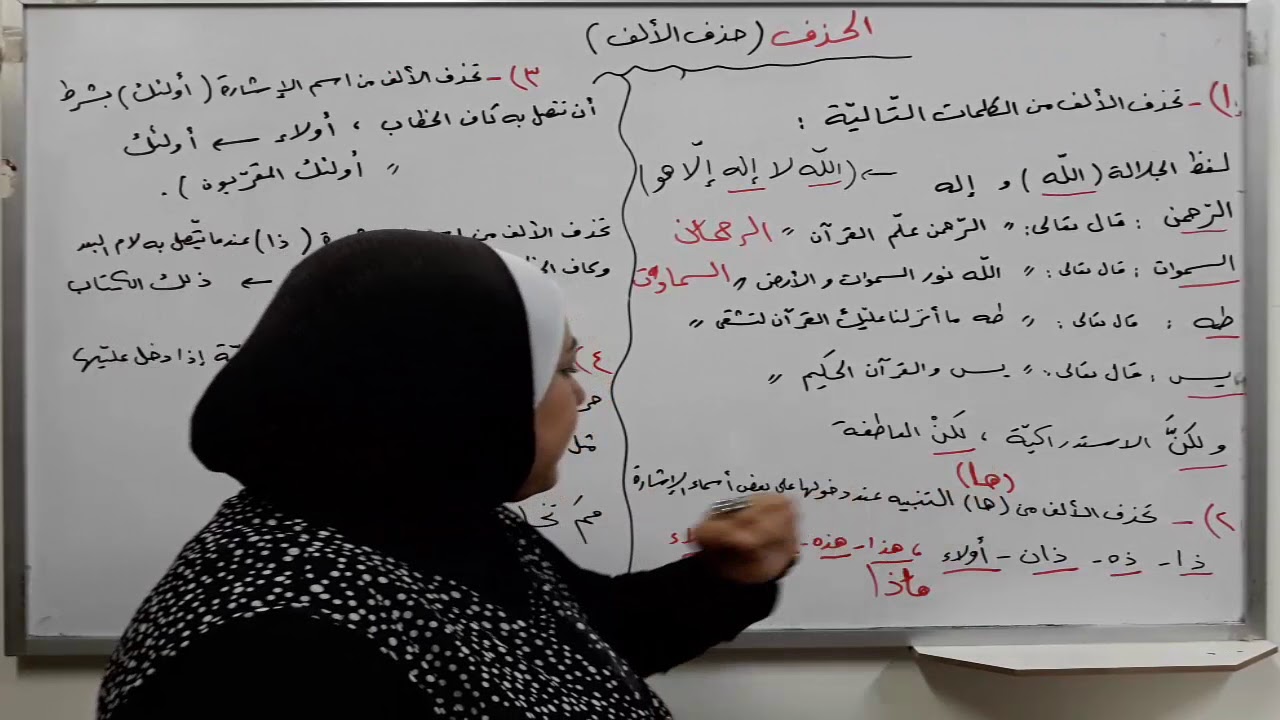 الحذف (حذف الألف)
١) - تحذف الألف من الكلمات التّاليّة :
لفظ الجلالة (اللّه) و إله ← (اللّه لا إله إلّا هو)
الرّحمن : قال تعالى: " الرّحمن علّم القرآن " الرحمان
السموات : قال تعالى: " اللّه نور السموات و الأرض " السماوات
طه : قال تعالى: " طه ما أنزلنا عليك القرآن لتشقى "
يس : قال تعالى: " يس والقرآن الحكيم "
ولكنَّ الاستدراكيّة ، لكنْ العاطفة
(ها)
٢) - تحذف الألف من (ها) التنبيه عند دخولها على بعض أسماء الإشارة
ذا - ذه - ذان - أولاء ، هذا - هذه -
هاذا
٣) - تحذف الألف من اسم الإشارة (أولئك) بشرط
أن تتصل به كاف الخطاب ، أولاء ← أولئك
" أولئك المقرّبون ) .
تحذف الألف من (ذا) عندما يتّصل به لام البعد
وكاف ← ذلك الكتاب
٤) إذا دخل عليها
مثل
ممَ